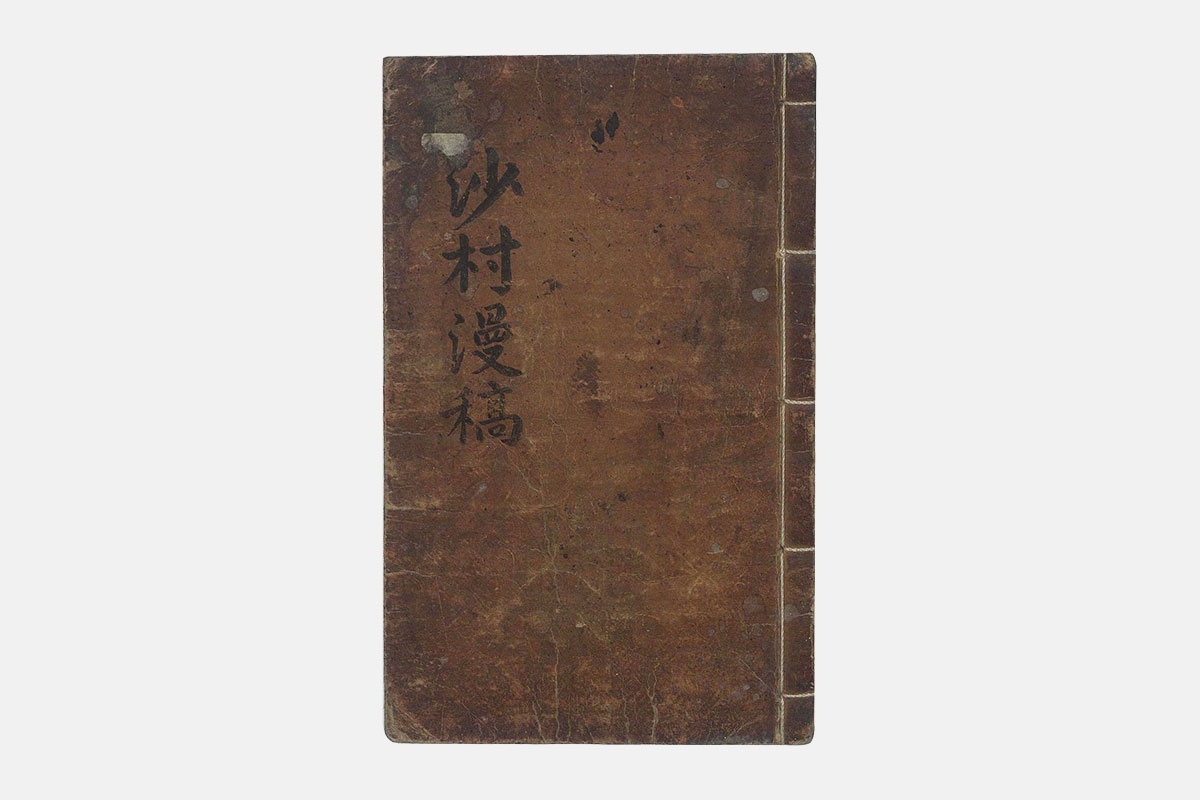 沙村漫稿